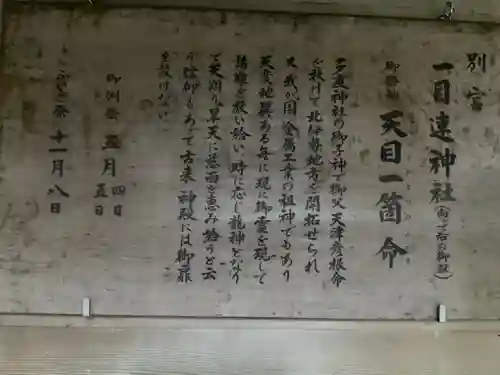 別宮
一目連神社(向って右の御殿)
御祭神 天目一箇命
多度神社の御子神で御父天津彦根命
を扶けて北伊勢地方を開拓せられ
又我が国金属工業の祖神でもあり
天変地異ある毎に現に御霊を現して
諸難を救い給い時に応じ龍神となり
て天翔り旱天に慈雨を恵み給うと云
う信仰もあって古来神殿には御扉
を設けない
御例祭 五月四日 五日
ふいご祭 十一月八日